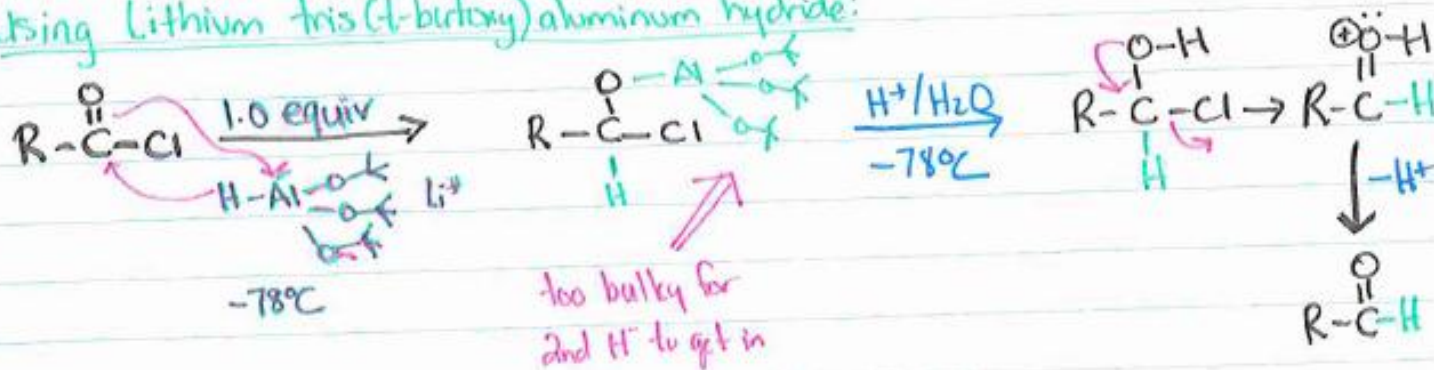 Using Lithium tris(t-butoxy)aluminum hydride:
O
R-C-Cl
1.0 equiv
H-Al-O
O
O
Li⁺
-78°C
O-Al-O
O
O
R-C-Cl
H
too bulky for
2nd H⁻ to get in
H⁺/H₂O
-78°C
O-H
R-C-Cl
H
⊕O-H
R-C-H
-H⁺
O
R-C-H